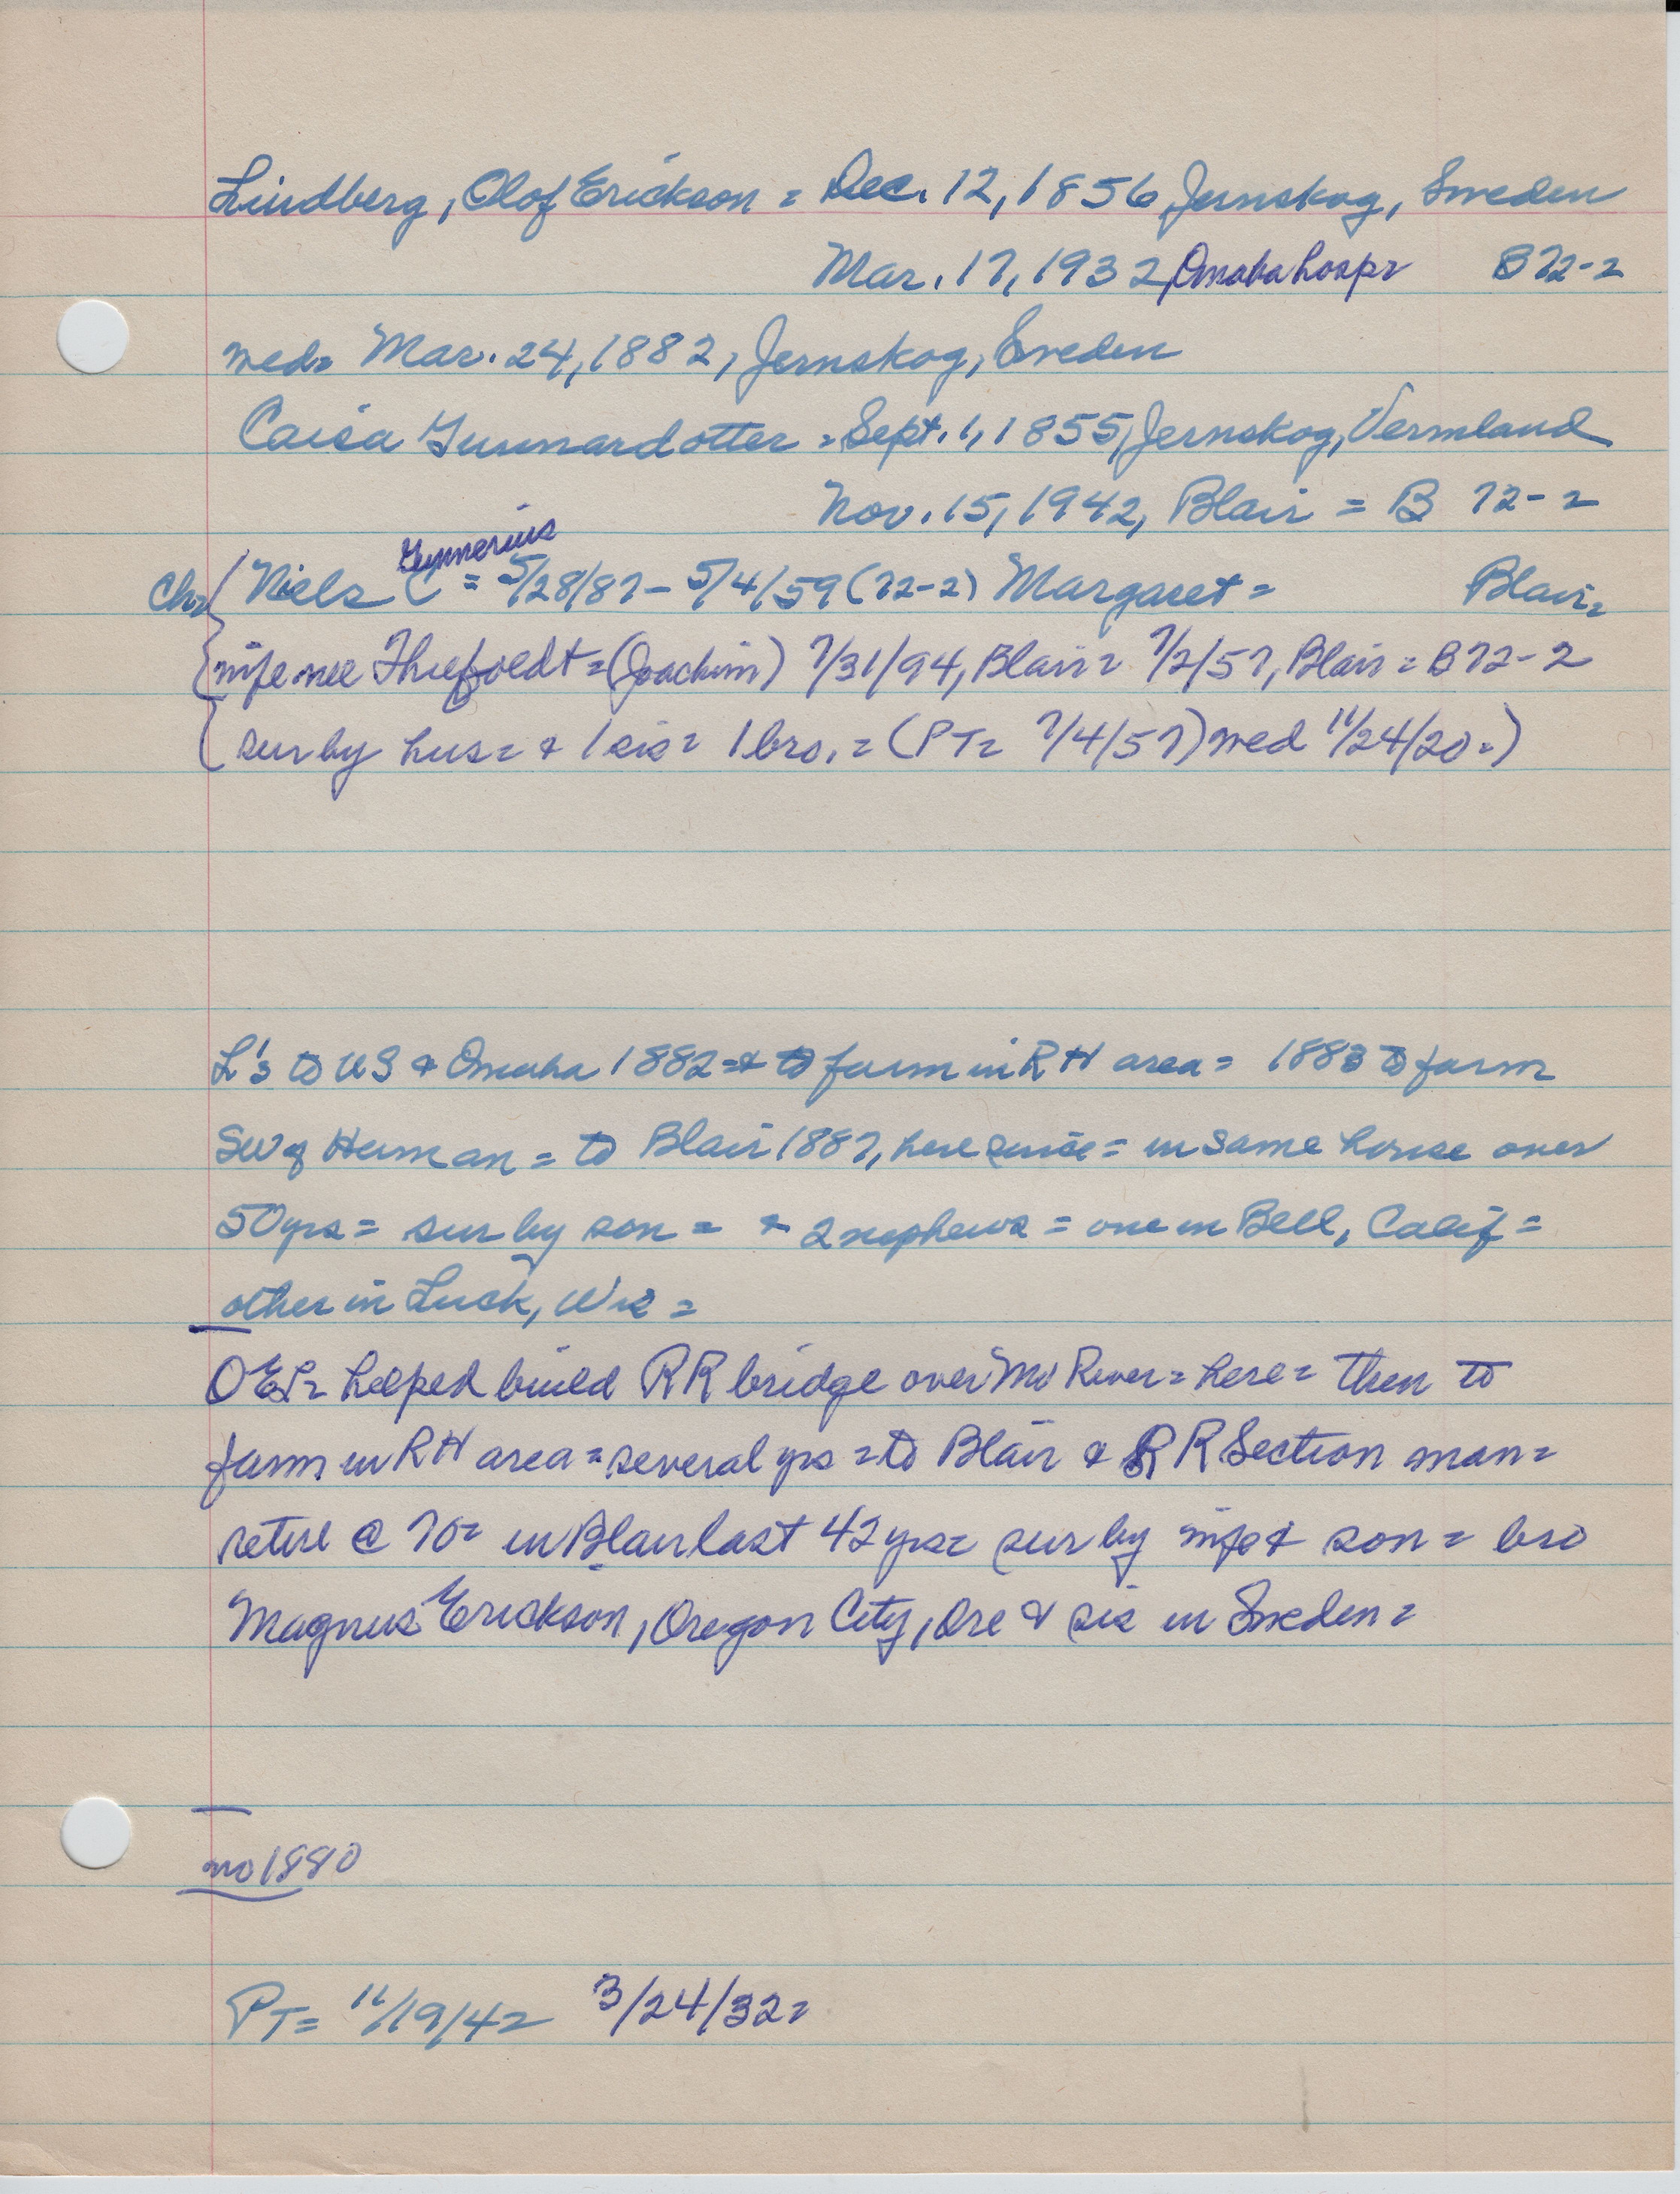 Lindberg, Olof Erickson = Dec. 12, 1856 Jernskog, Sweden
Mar. 17, 1932, Omaha hosp= B 72-2
wed= Mar. 24, 1882, Jernskog, Sweden
Caisa Gunnardotter = Sept. 1, 1855, Jernskog, Vermland
Nov. 15, 1942, Blair = B 72-2
Gunnerius
Ch= Niels ( = 5/28/87 - 5/4/59 (72-2) Margaret = Blair=
wife nee (Joachim) 7/31/94, Blair = 7/2/57, Blair = B 72-2
sur by hus= & 1 sis= 1 bro. = (PT= 7/4/57) wed 11/24/20=)
L's to US & Omaha 1882 = & to farm in RH area = 1883 to farm
SW of Herman = to Blair 1887, here since = in same house over
50 yrs = sur by son = & 2 nephews = one in Bell, Calif =
other in Luck, Wis =
OEL= helped build RR bridge over Mo River = here = then to
farm in RH area = several yrs = to Blair & RR Section man =
retire @ 70= in Blair last 42 yrs= sur by wife & son = bro
Magnus Erickson, Oregon City, Ore & sis in Sweden =
no 1880
PT= 11/19/42 3/24/32=